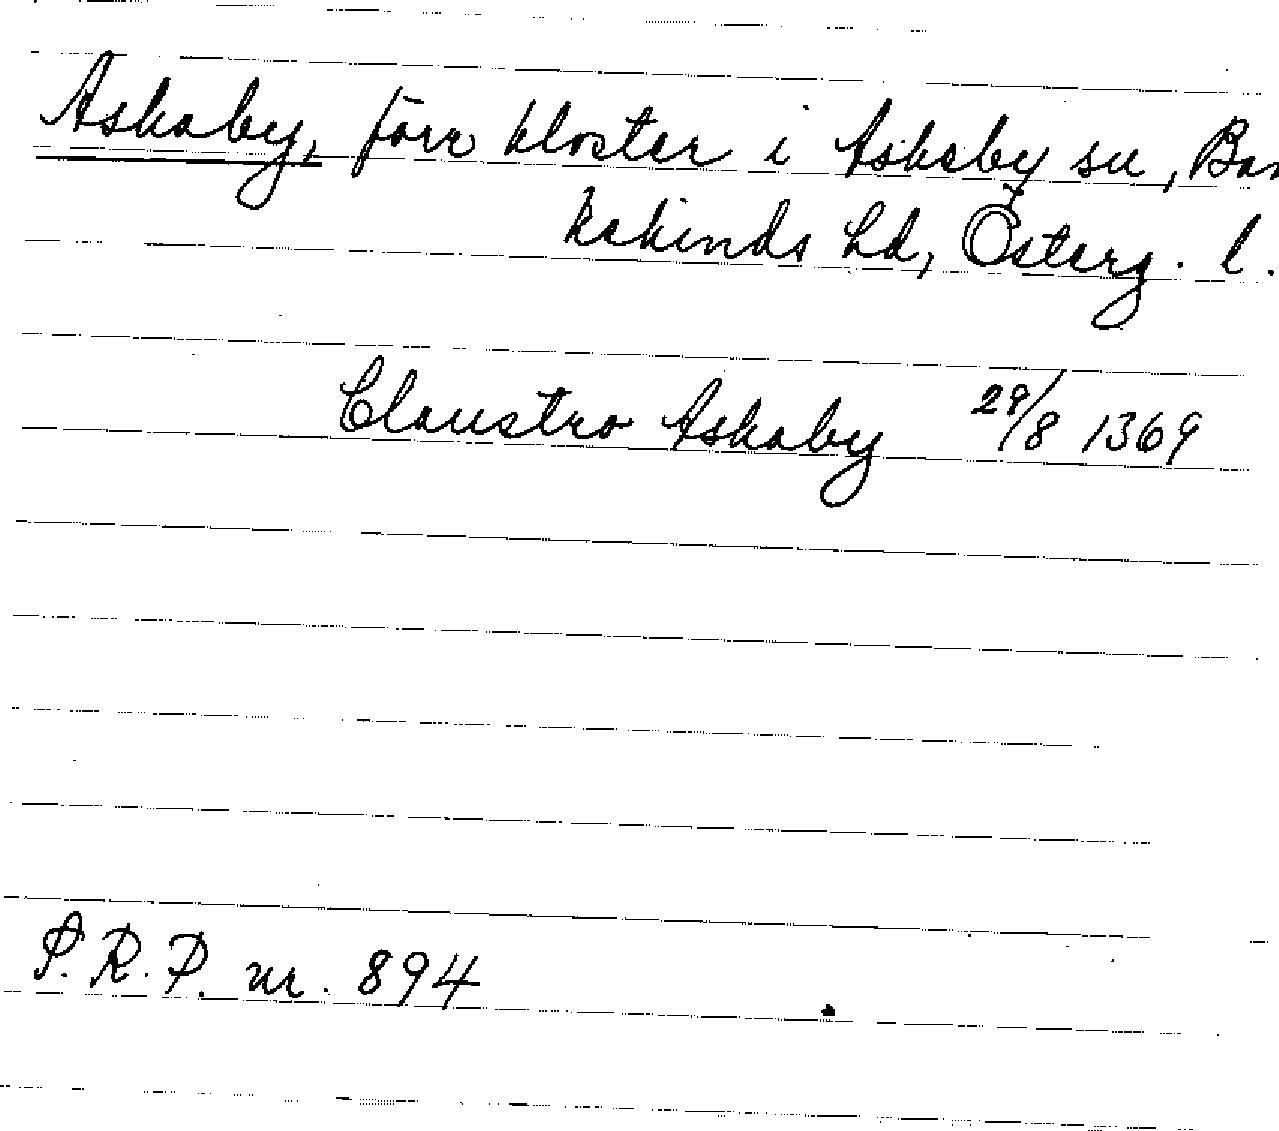 Askaby, förr kloster i Askeby sn, Ban
kekinds hd, Österg. l.
Claustro Askaby 29/8 1369
S.R.P. nr. 894